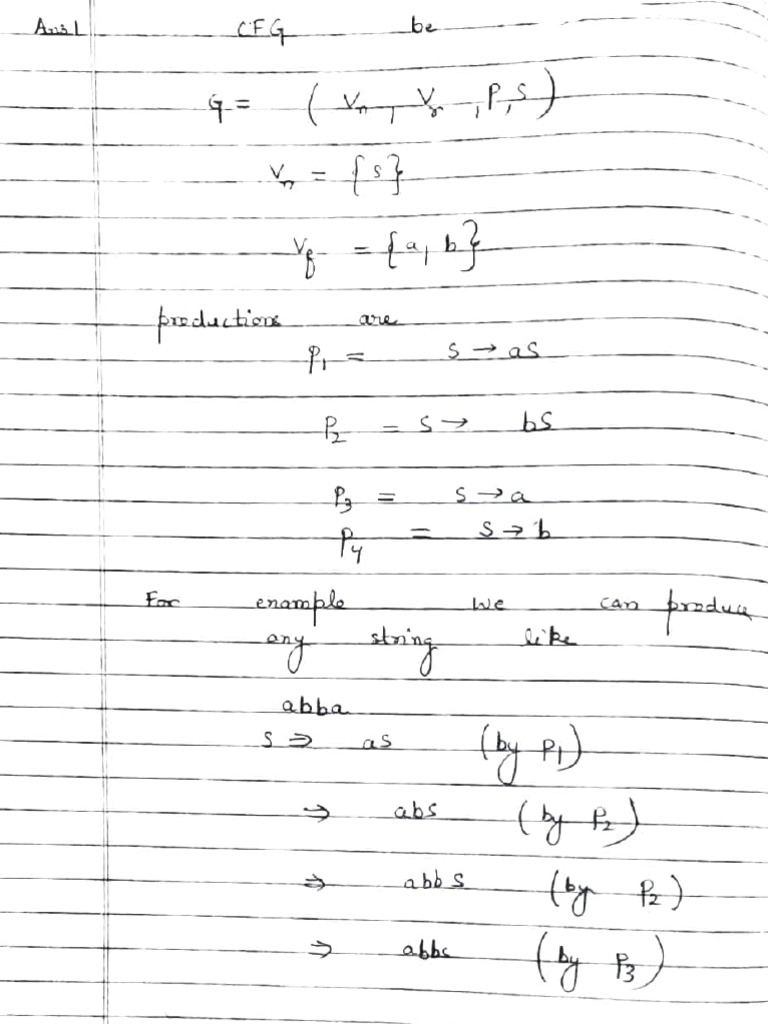 Ans1 CFG be
G = ( Vn, Vr, P, S )
Vn = {s}
Vf = {a, b}
productions are
P1 = S → aS
P2 = S → bS
P3 = S → a
P4 = S → b
For enample we can produce
any string like
abba
S ⇒ as (by P1)
⇒ abs (by P2)
⇒ abbs (by P2)
⇒ abbc (by P3)